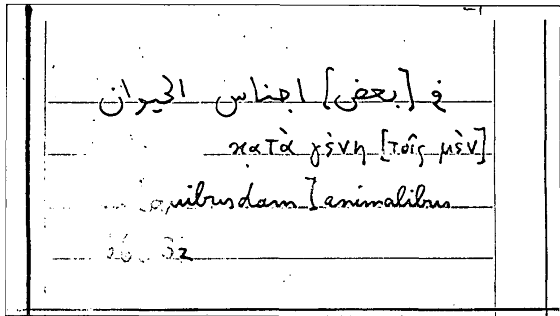 في [بعض] اجناس الحيوان
κατὰ γένη [τοῖς μὲν]
quibusdam] animalibus